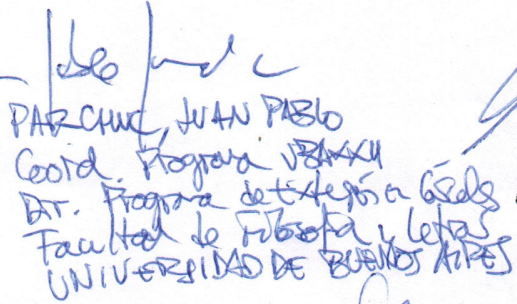 PARCHUC, JUAN PABLO
Coord. Programa UBAXXII
Dir. Programa de Extensión en Cárceles
Facultad de Filosofía y Letras
UNIVERSIDAD DE BUENOS AIRES